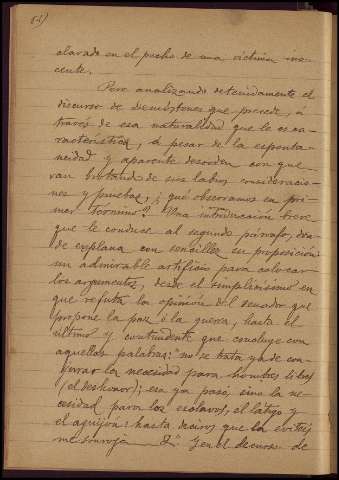 clavada en el pecho de una víctima ino-
cente.
Pero analizando detenidamente el
discurso de Demóstenes que precede, á
través de esa naturalidad que le es ca-
racterística, á pesar de la esponta-
neidad y aparente desorden con que
van brotando de sus labios consideracio-
nes y pruebas, ¿qué observamos en pri-
mer término? Una introducción breve
que le conduce al segundo párrafo, don-
de explana con sencillez su proposición:
un admirable artificio para colocar
los argumentos, desde el simplicísimo en
que refuta la opinión del senador que
propone la paz ó la guerra, hasta el
último y contundente que concluye con
aquellas palabras: no se trata ya de con-
jurar la necesidad para hombres libres
(el deshonor); esa ya pasó, sino la ne-
cesidad para los esclavos, el látigo y
el aguijón: hasta deciros que la evitéis
me sonroja. Y en el discurso de